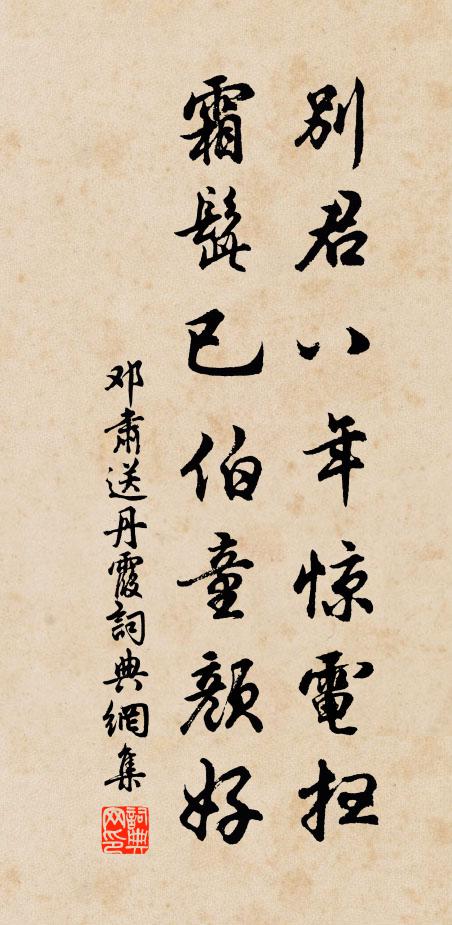 别君八年惊電扫
霜髭已伯童颜好
邓肅送丹霞詞典網集
詞典网印